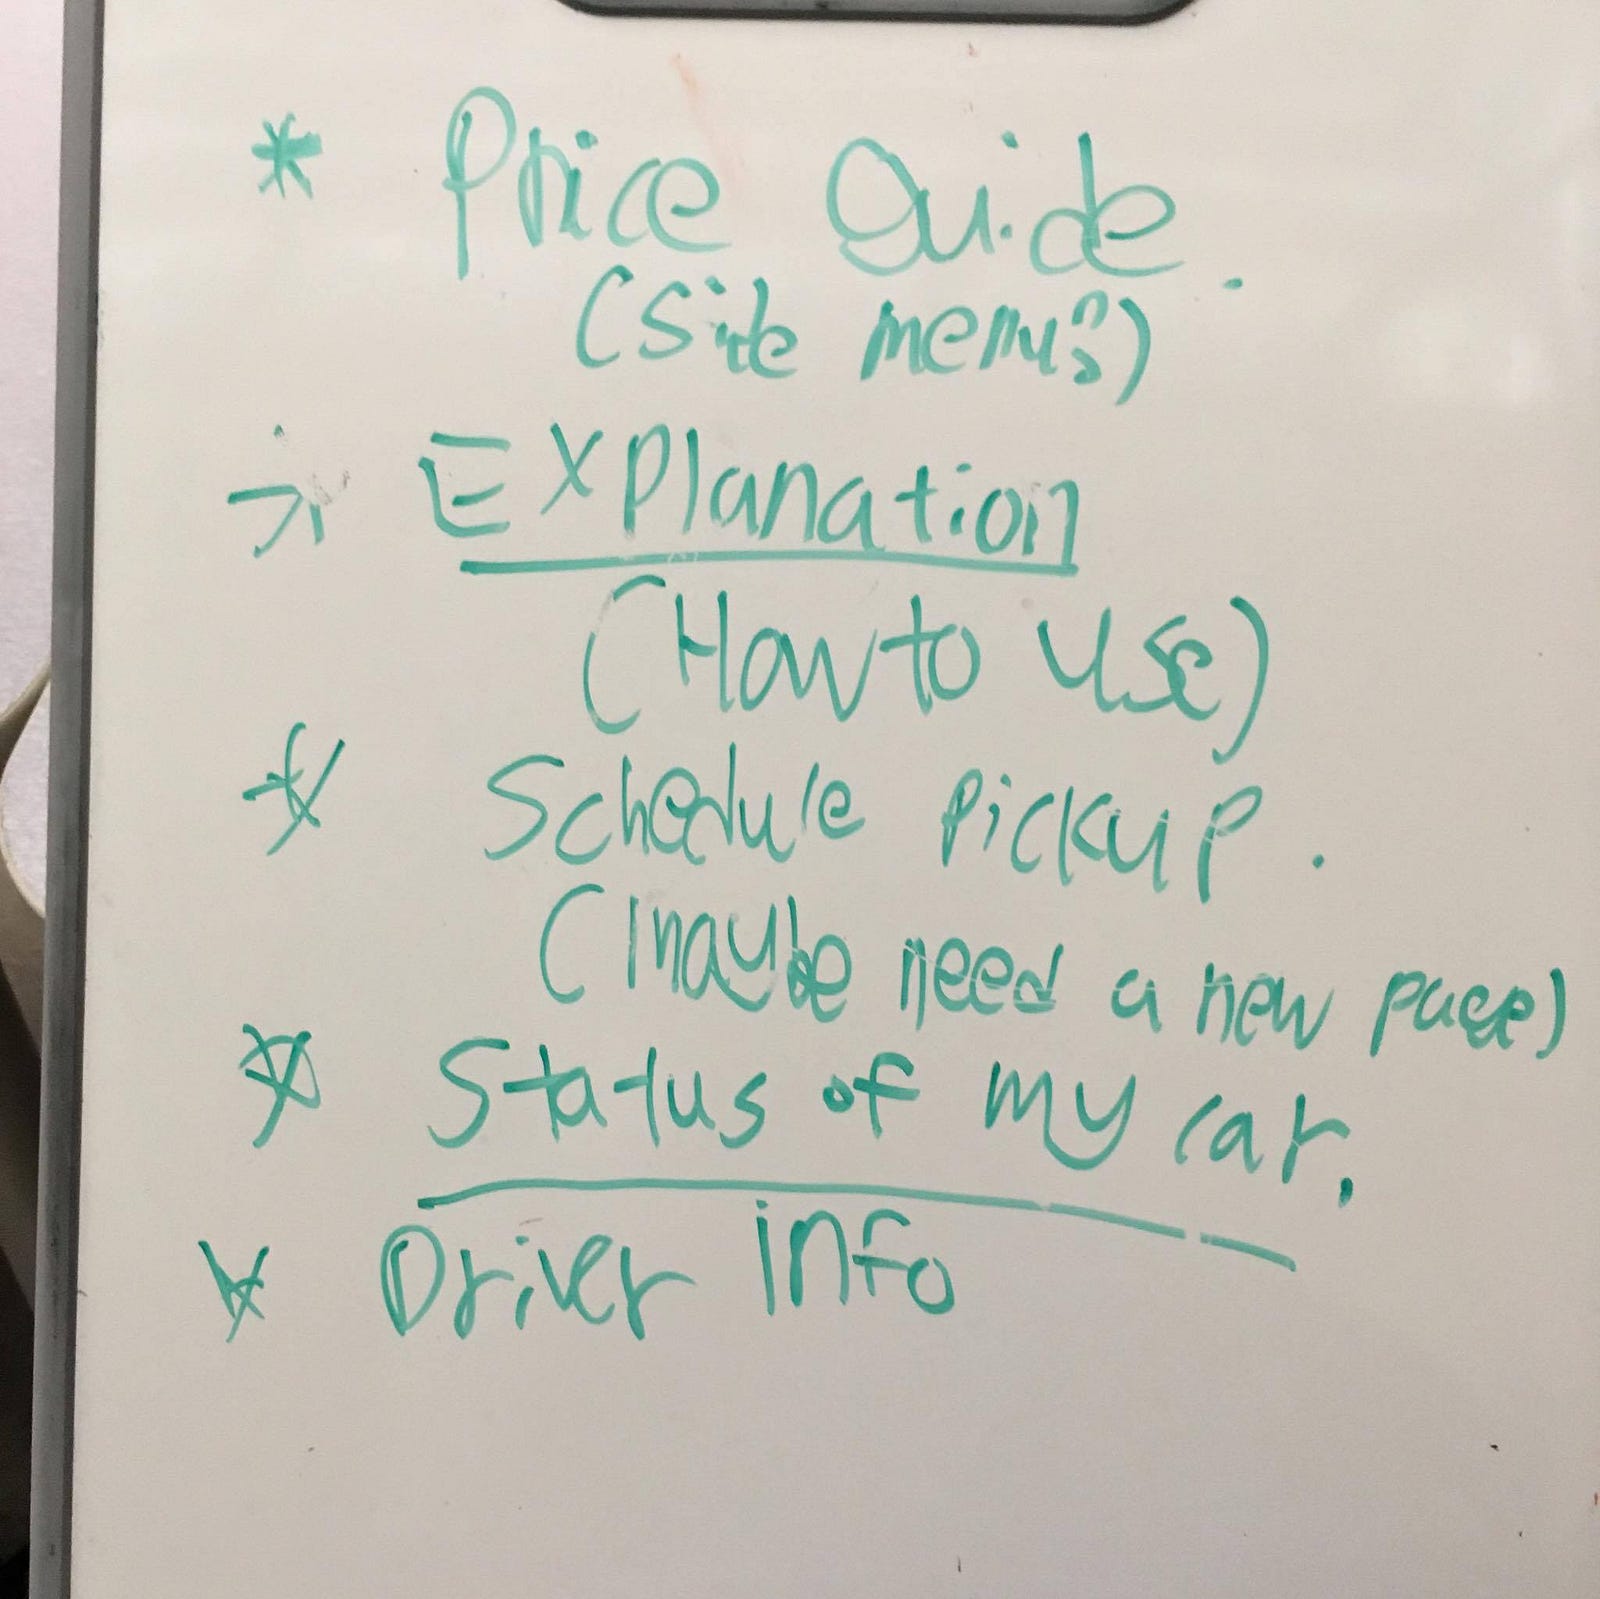 * Price Guide.
(Site menu?)
* Explanation
(How to use)
* Schedule Pickup.
(maybe need a new page)
* Status of my car.
* Driver info